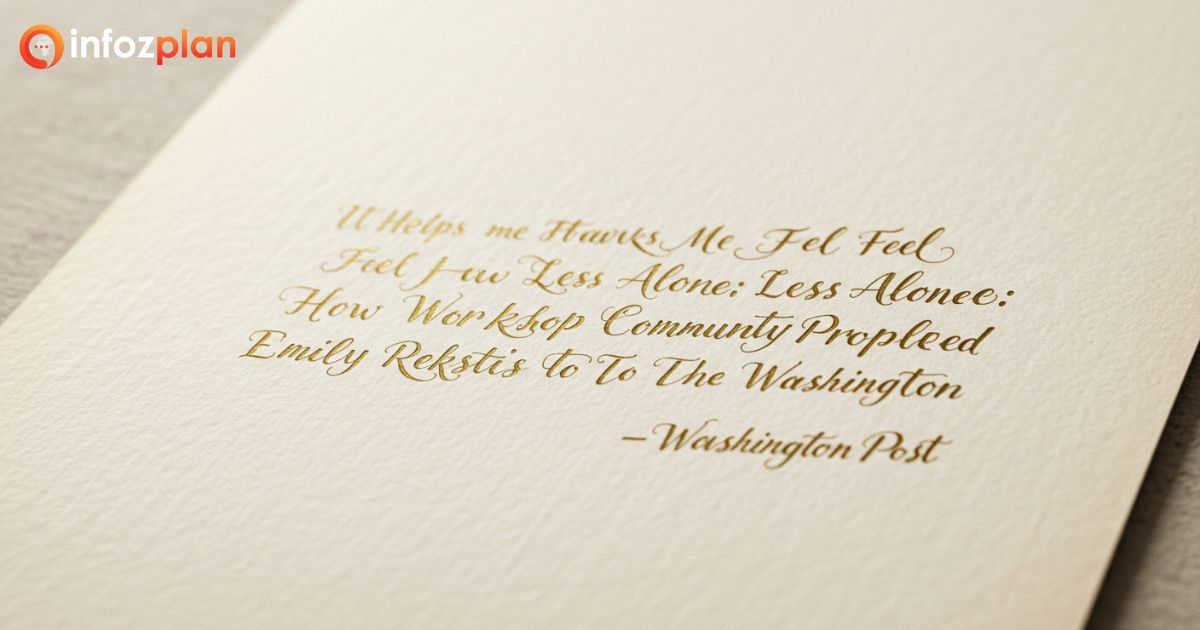 infozplan
It Helps me Hawks Me Fel Feel
Feel Few Less Alone: Less Alonee:
How Workshop Communty Propleed
Emily Rekstis to To The Washington
– Washington Post